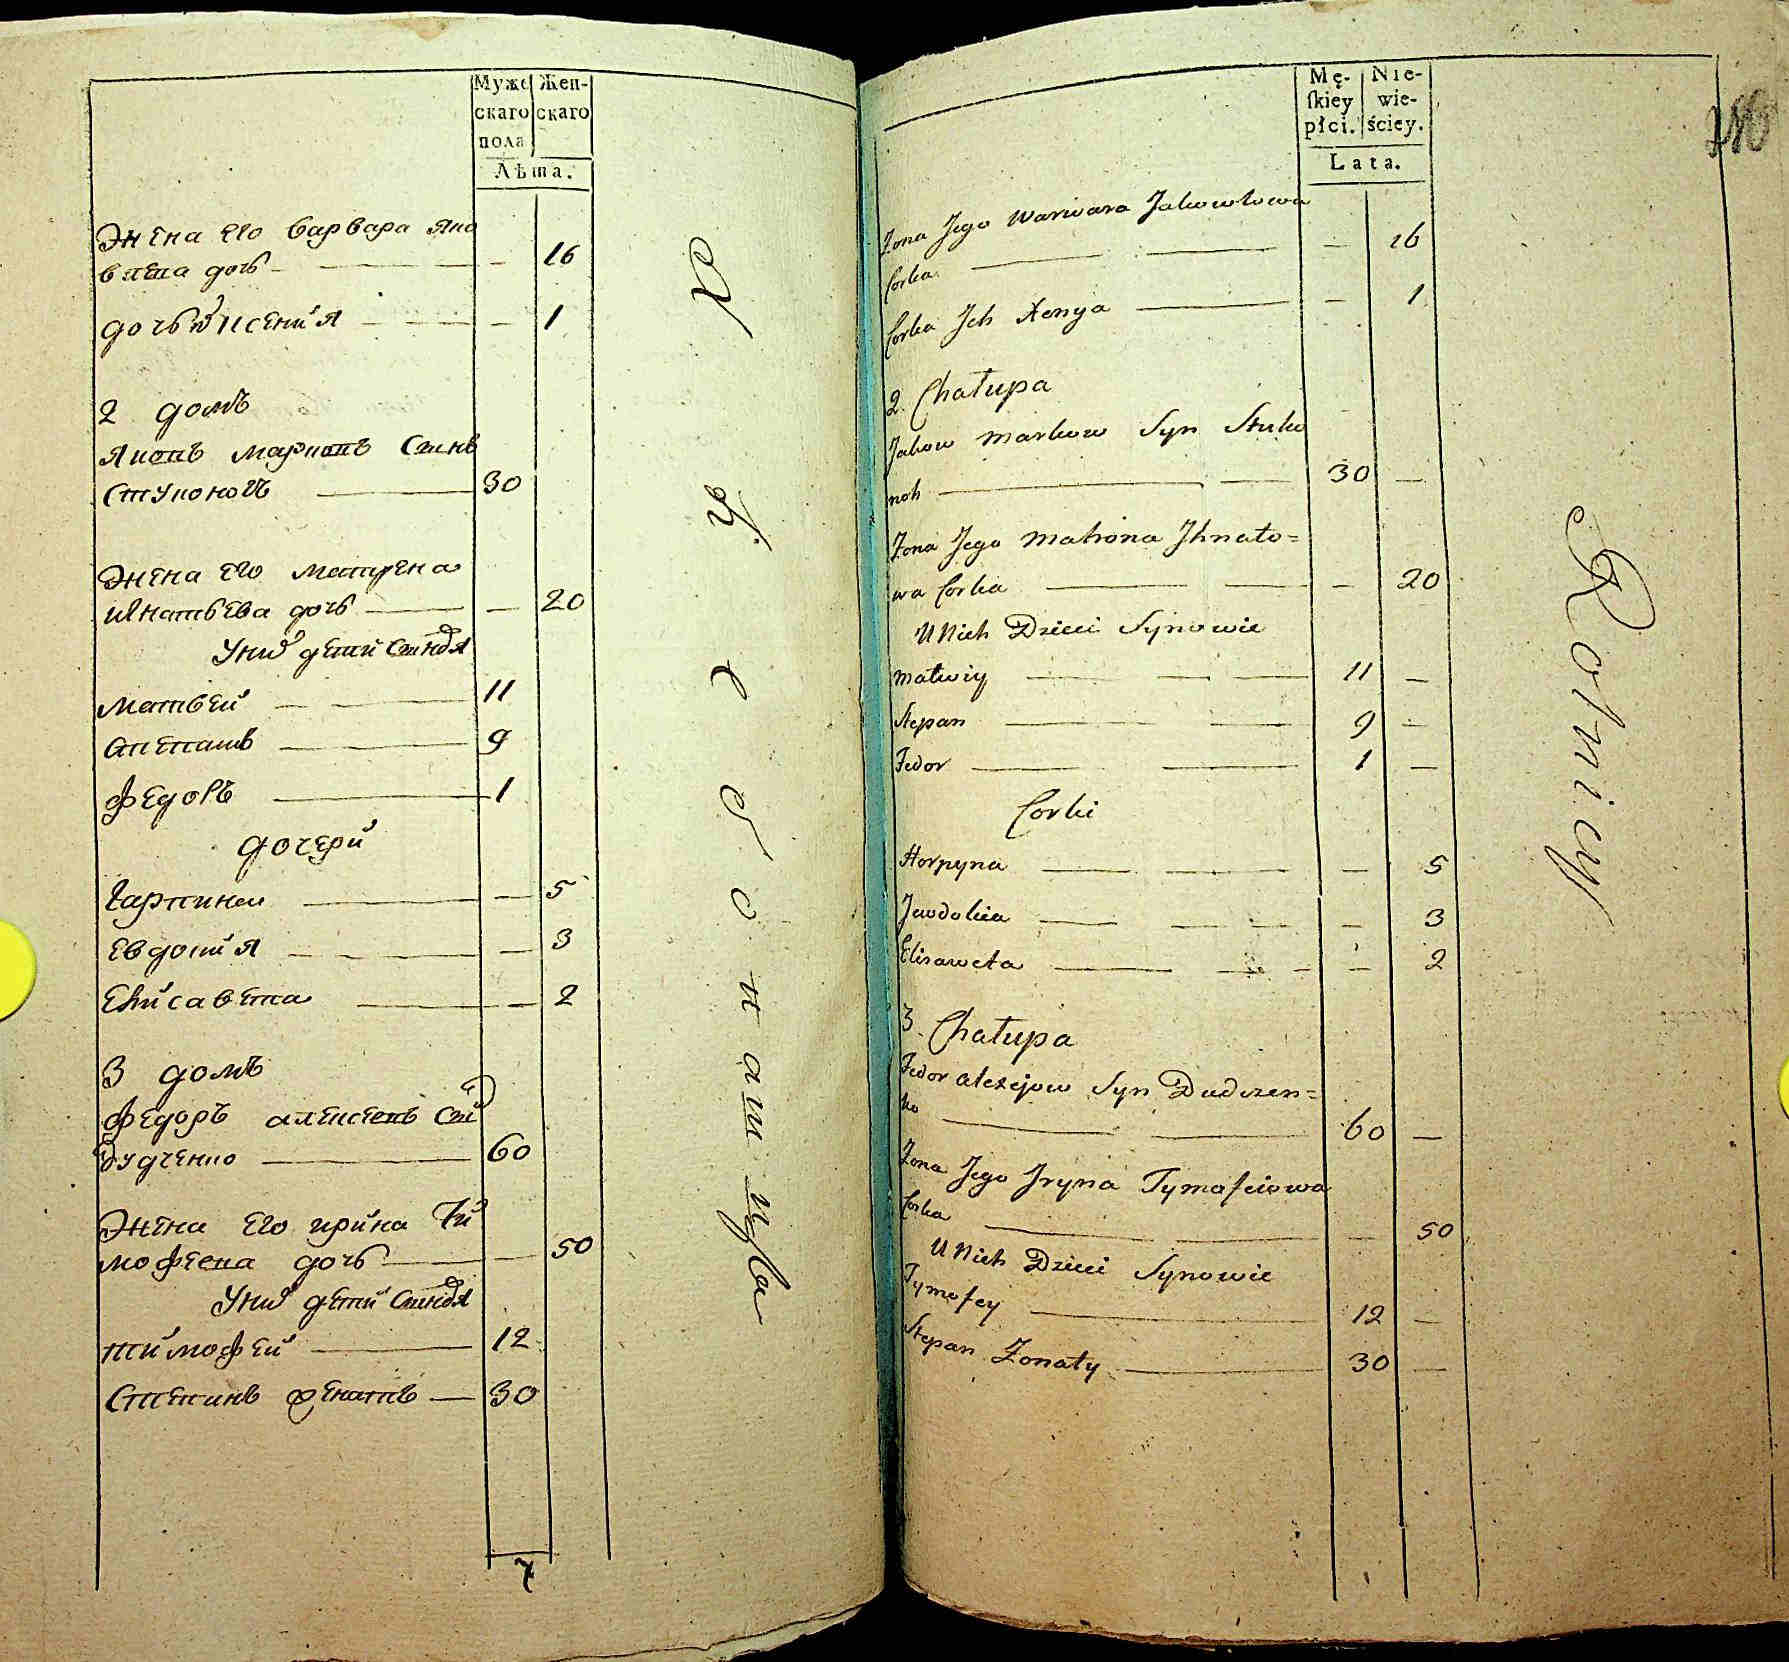 Муже
скаго
пола
Жен-
скаго
Лѣта.
Жена его Варвара Яко
влева дочь — — — 16
дочь их Ксенія — — — 1
2 домъ
Яковъ Марковъ Сынъ
Ступонохъ — 30
Жена его Матрена
Игнатьева дочь — — 20
У них детй Синовя
Матвей — — 11
Степанъ — 9
Федоръ — 1
дочерй
Гарпина — — 5
Евдокия — — — 3
Елисавета — — 2
3 домъ
Федоръ Алексеевъ
Дудченко — 60
Жена его Ирина Ти
мофеева дочь — — 50
У них детй Синовя
Тимофей — 12
Степанъ женатъ — 30
7
Mę-
skiey
płci.
Nie-
wie-
ściey.
Lata.
Żona Jego Warwara Jakowłowa
Corka — — — 16
Corka Jch Xenya — — 1
2. Chałupa
Jakow Markow Syn Stuko
noh — — 30 —
Żona Jego Matrona Jhnato=
wa Corka — — — 20
U Nich Dzieci Synowie
Matwiy — — — 11 —
Stepan — — 9 —
Fedor — — 1 —
Corki
Horpyna — — — — 5
Jewdokia — — — — 3
Elisaweta — — — — 2
3. Chałupa
Fedor Alexejow Syn Dudczen=
ko — — 60 —
Żona Jego Jryna Tymofeiowa
Corka — — — 50
U Nich Dzieci Synowie
Tymofey — 12 —
Stepan Żonaty — 30 —
Rolnicy